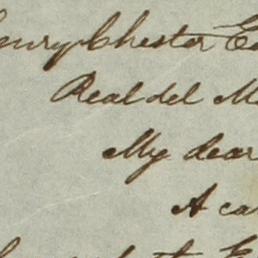 enry Chester E
Real del M
My dear
A ca